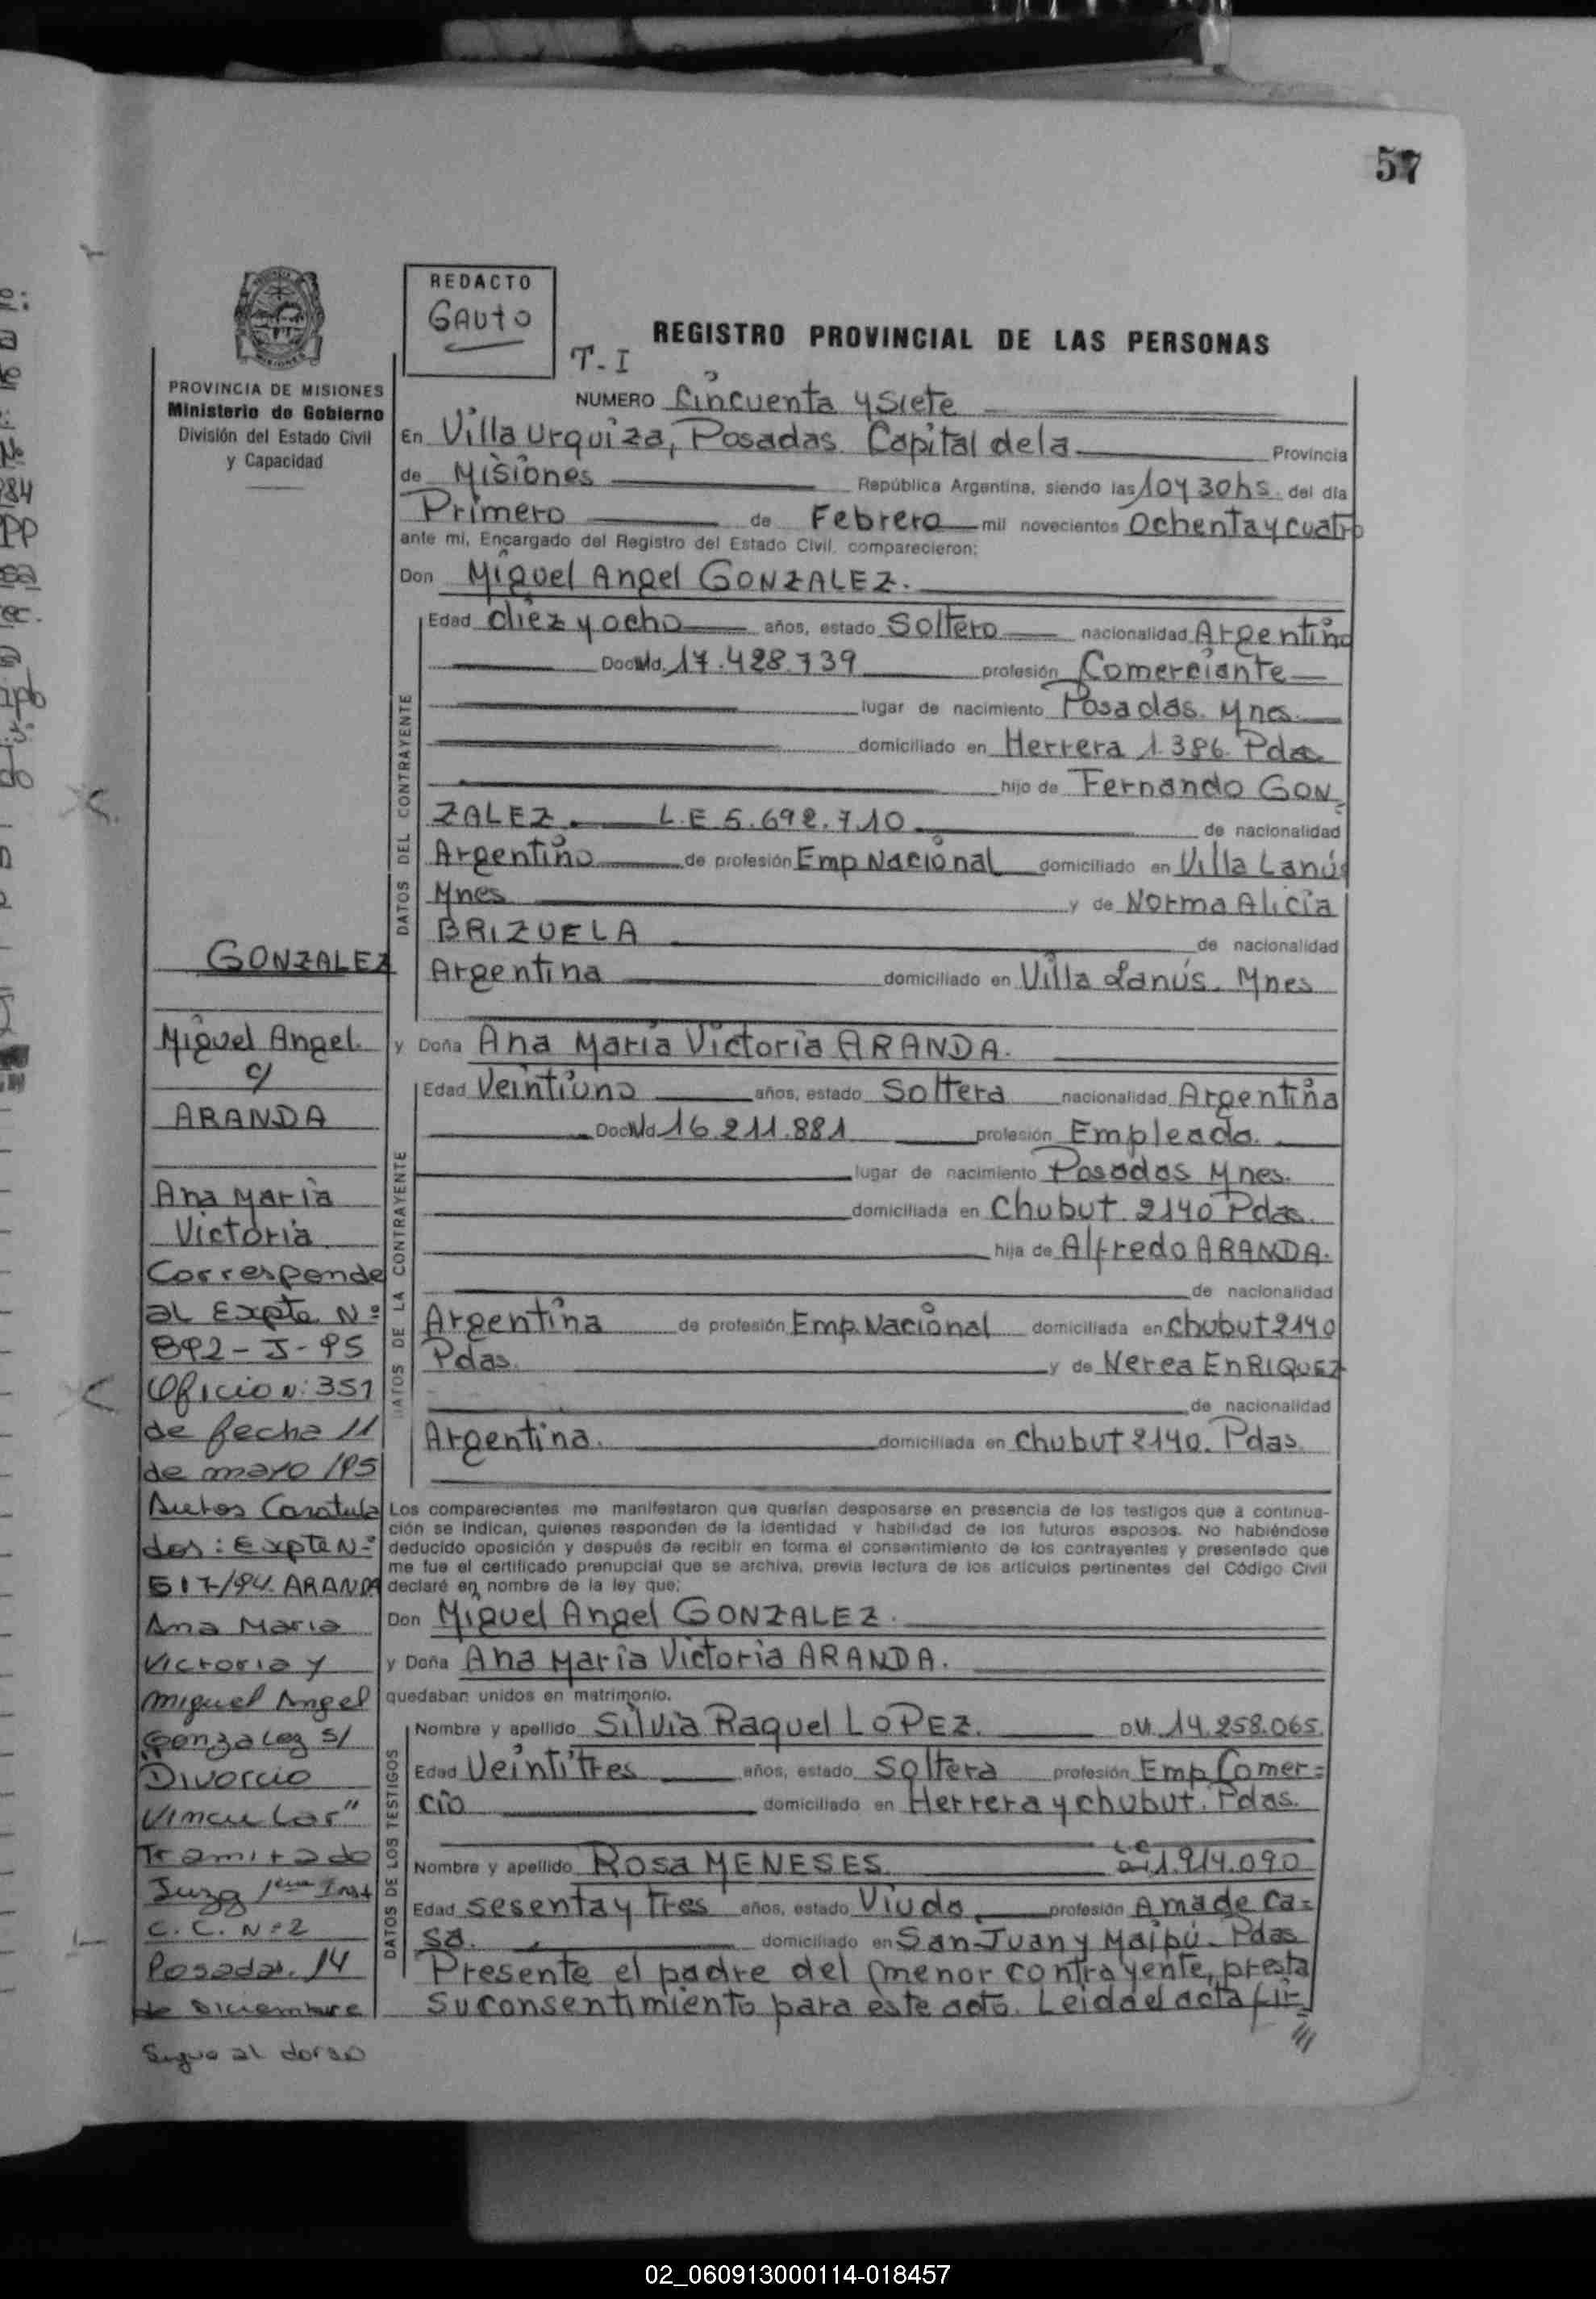 57
REDACTO
GAUTO
T-I
REGISTRO PROVINCIAL DE LAS PERSONAS
PROVINCIA DE MISIONES
Ministerio de Gobierno
División del Estado Civil
y Capacidad
NUMERO Cincuenta y Siete
En Villa Urquiza, Posadas. Capital de la Provincia
de Misiones República Argentina, siendo las 10 y 30 hs. del día
Primero de Febrero mil novecientos Ochenta y cuatro
ante mí, Encargado del Registro del Estado Civil, comparecieron:
Don Miguel Angel GONZALEZ.
DATOS DEL CONTRAYENTE
Edad diez y ocho años, estado Soltero nacionalidad Argentino
Doc 17.428.739 profesión Comerciante
lugar de nacimiento Posadas. Mnes.
domiciliado en Herrera 1386. Pdas
hijo de Fernando GON
ZALEZ. L.E 5.692.710 de nacionalidad
Argentino de profesión Emp Nacional domiciliado en Villa Lanús
Mnes y de Norma Alicia
BRIZUELA de nacionalidad
Argentina domiciliado en Villa Lanús. Mnes
y Doña Ana María Victoria ARANDA.
DATOS DE LA CONTRAYENTE
Edad Veintiuno años, estado Soltera nacionalidad Argentina
Doc 16.211.881 profesión Empleada.
lugar de nacimiento Posadas Mnes.
domiciliada en Chubut 2140 Pdas.
hija de Alfredo ARANDA.
de nacionalidad
Argentina de profesión Emp. Nacional domiciliada en Chubut 2140
Pdas. y de Nerea ENRIQUEZ
de nacionalidad
Argentina. domiciliada en Chubut 2140. Pdas.
Los comparecientes me manifestaron que querían desposarse en presencia de los testigos que a continua-
ción se indican, quienes responden de la identidad y habilidad de los futuros esposos. No habiéndose
deducido oposición y después de recibir en forma el consentimiento de los contrayentes y presentado que
me fue el certificado prenupcial que se archiva, previa lectura de los artículos pertinentes del Código Civil
declaré en nombre de la ley que:
Don Miguel Angel GONZALEZ.
y Doña Ana María Victoria ARANDA.
quedaban unidos en matrimonio.
DATOS DE LOS TESTIGOS
Nombre y apellido Silvia Raquel LOPEZ. 14.258.065
Edad Veintitres años, estado Soltera profesión Emp Comer=
cio domiciliado en Herrera y chubut. Pdas.
Nombre y apellido Rosa MENESES L.C 1.914.090
Edad sesenta y tres años, estado Viuda profesión Ama de Ca=
sa. domiciliado en San Juan y Maipú. Pdas
Presente el padre del menor contrayente, presta
su consentimiento para este acto. Leida el acta fir=
GONZALEZ
Miguel Angel.
c/
ARANDA
Ana María
Victoria
Corresponde
al Expte Nº
892-J-95
Oficio N: 351
de fecha 11
de mayo /95
Autos Caratula
dos: Expte Nº
517/94. ARANDA
Ana Maria
Victoria y
Miguel Angel
Gonzalez s/
Divorcio
Vincular"
Tramitado
Juzg 1era Inst
C. C. N: 2
Posadas. 14
de Diciembre
Sigue al dorso
02_060913000114-018457